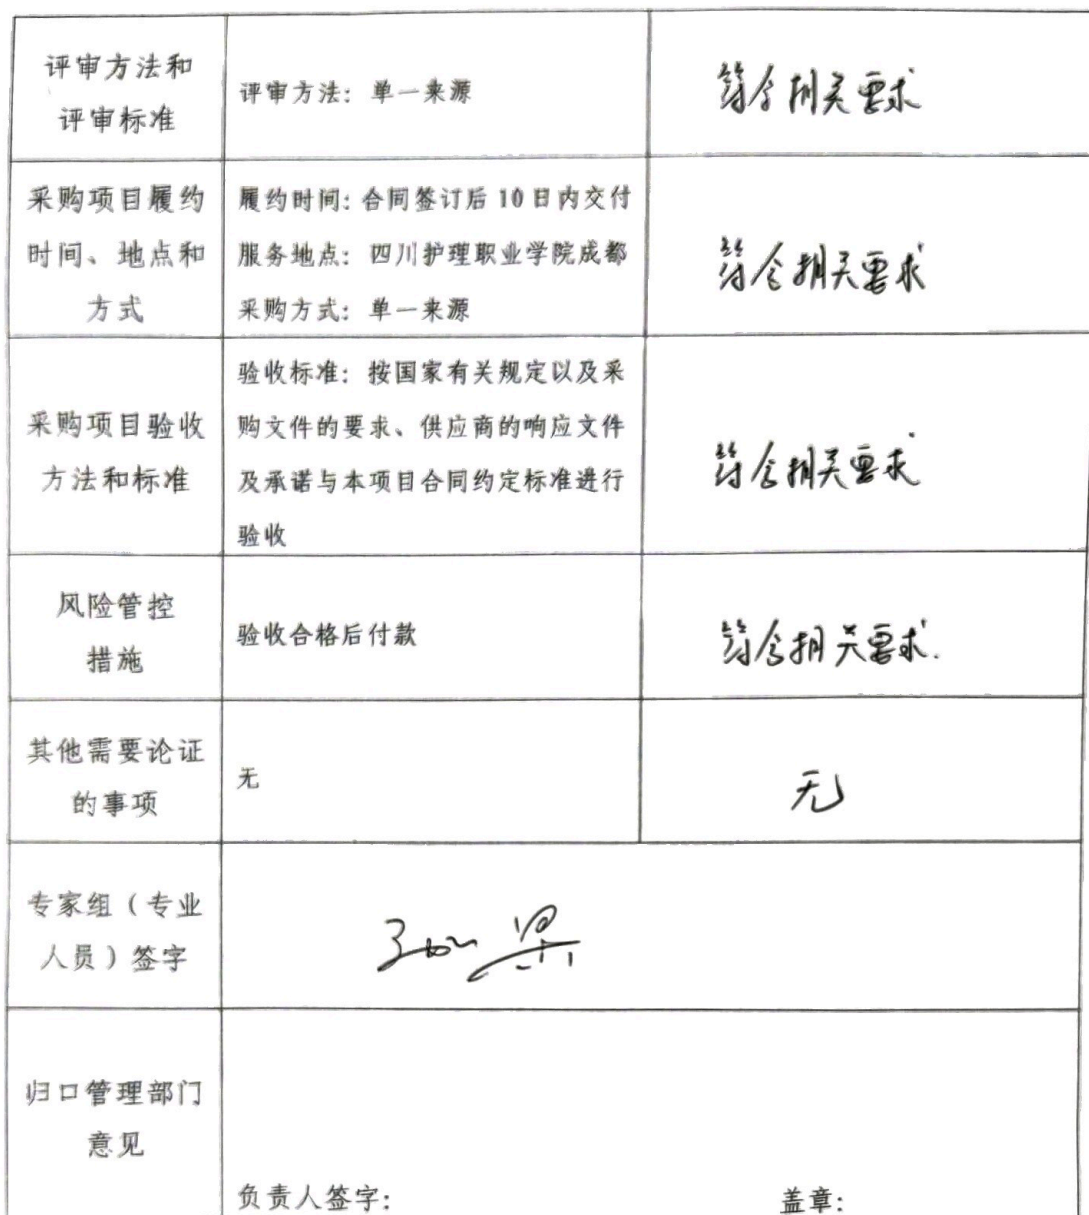 评审方法和
评审标准
评审方法：单一来源
符合相关要求
采购项目履约
时间、地点和
方式
履约时间：合同签订后 10 日内交付
服务地点：四川护理职业学院成都
采购方式：单一来源
符合相关要求
采购项目验收
方法和标准
验收标准：按国家有关规定以及采
购文件的要求、供应商的响应文件
及承诺与本项目合同约定标准进行
验收
符合相关要求
风险管控
措施
验收合格后付款
符合相关要求.
其他需要论证
的事项
无
无
专家组（专业
人员）签字
归口管理部门
意见
负责人签字：
盖章：